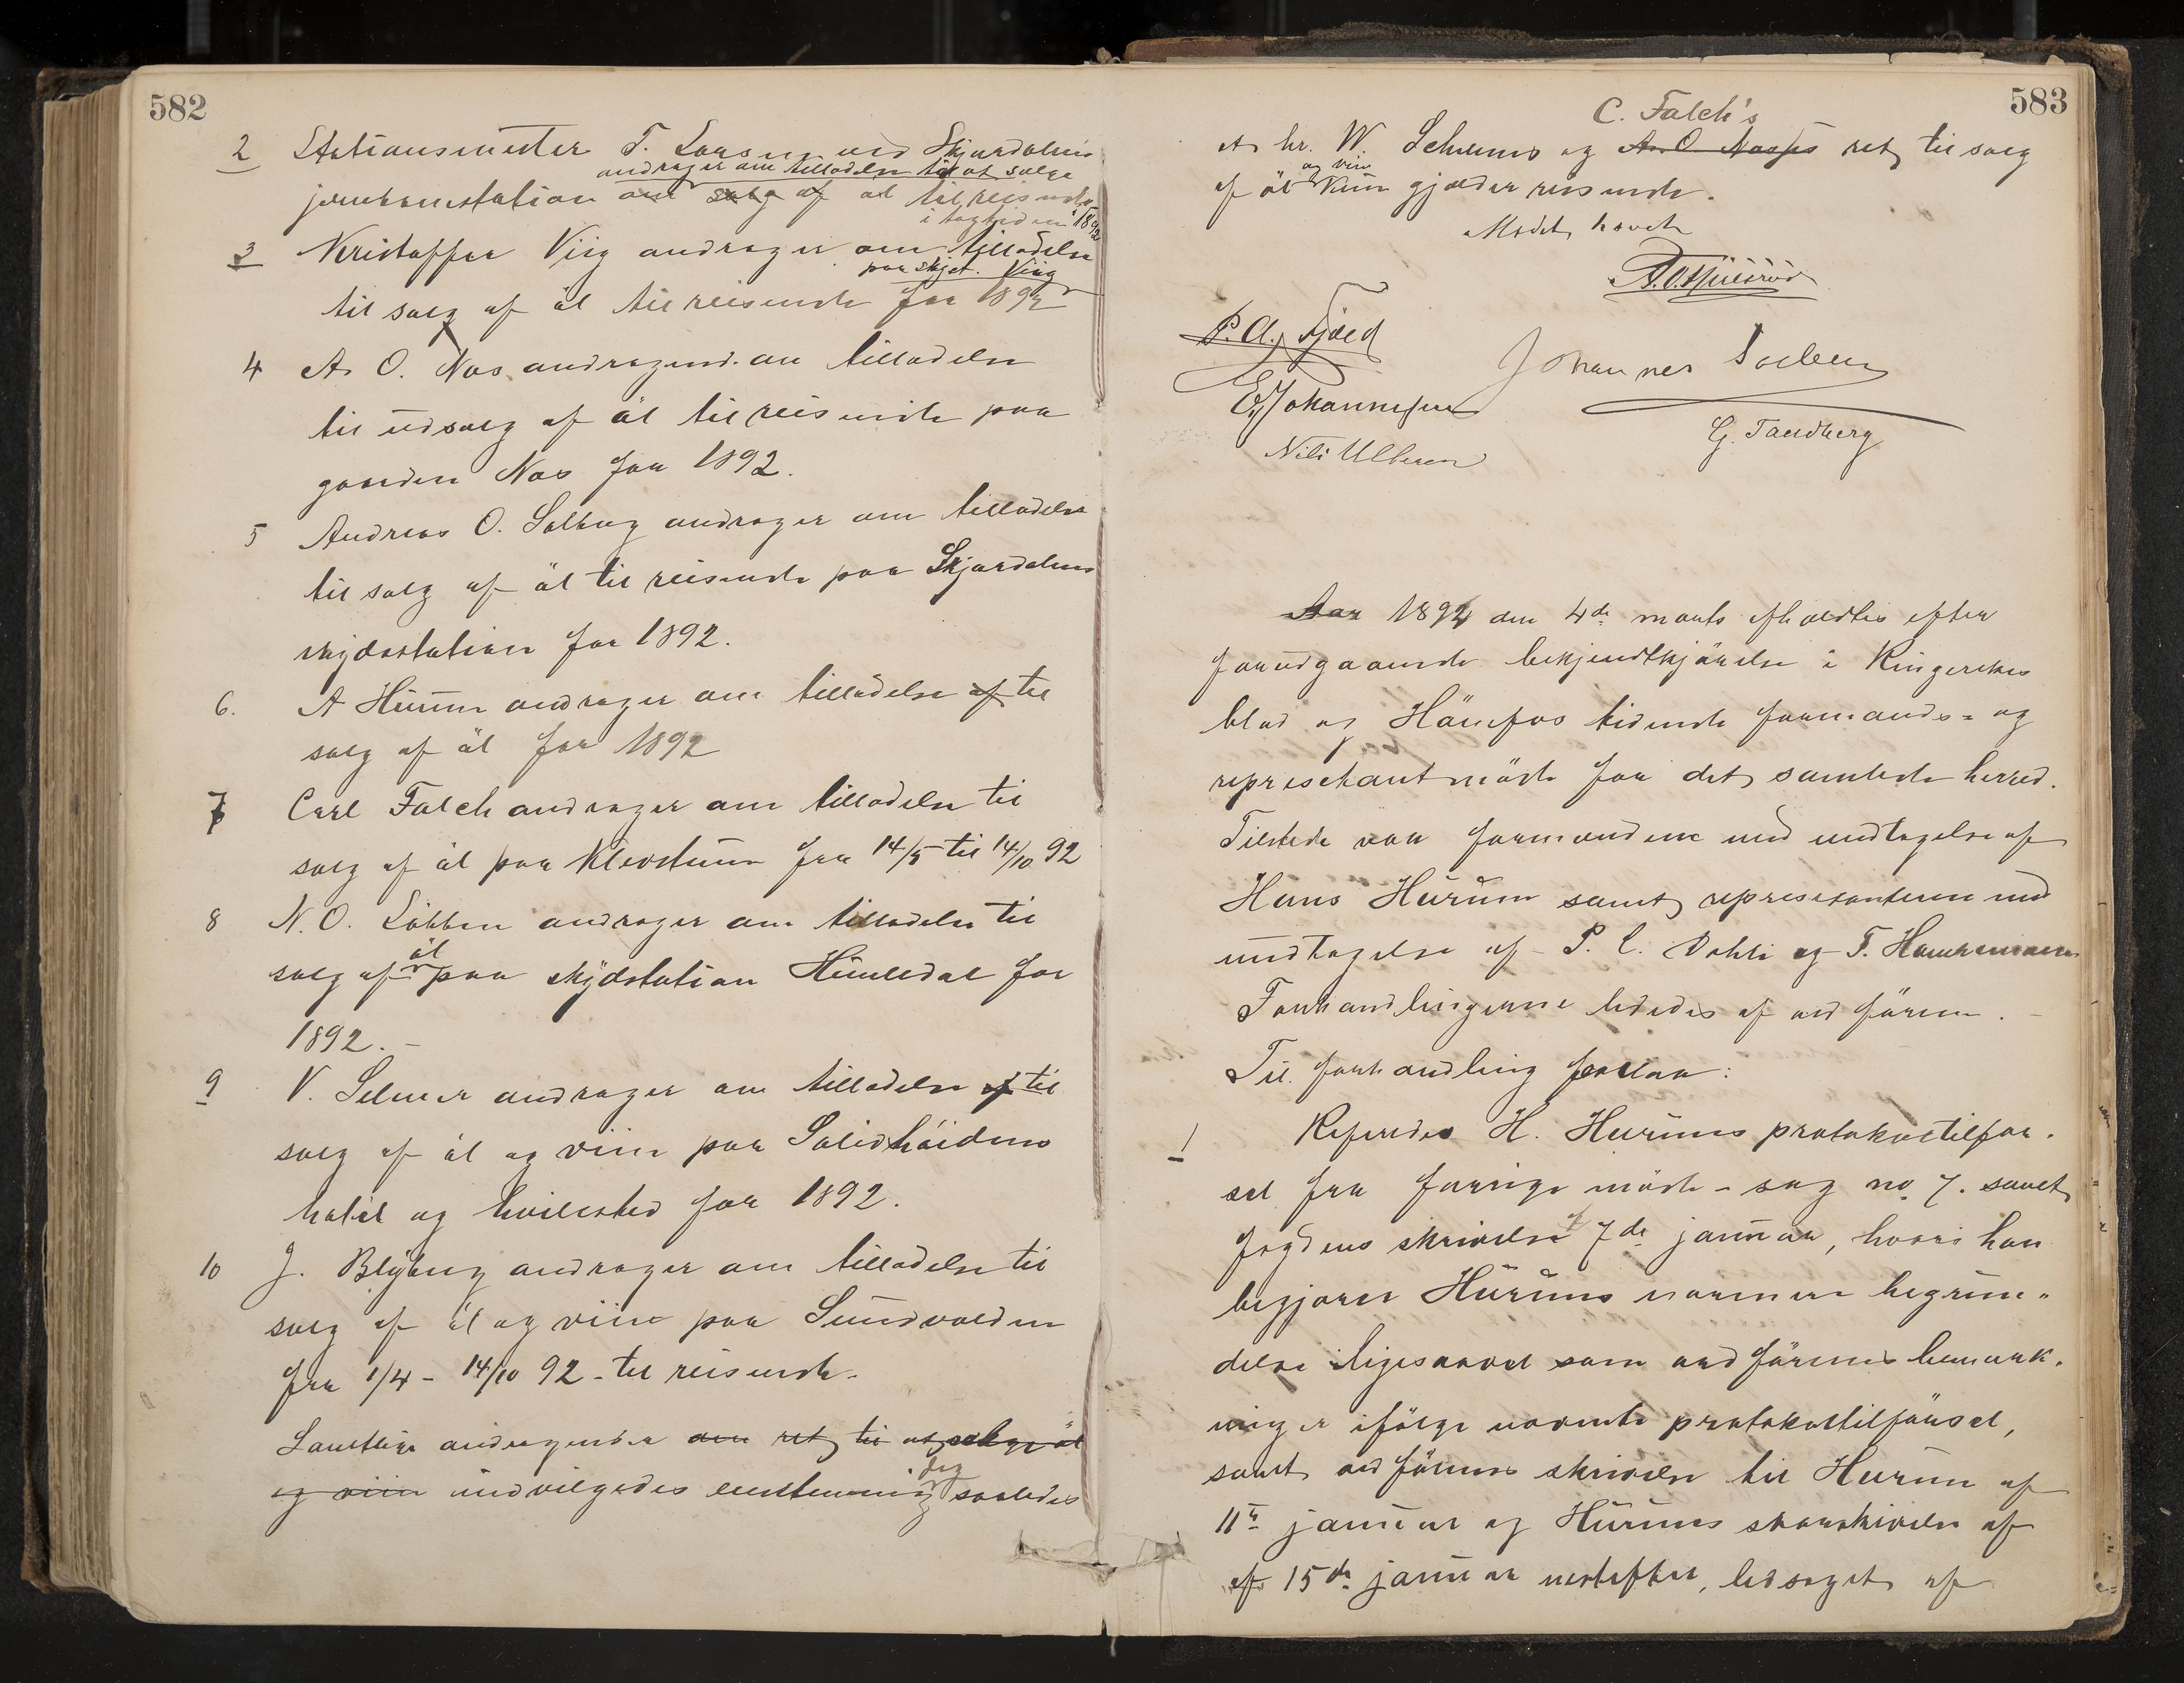 582
2 Stationsmester T. Larsen ved Skjærdalens
andrager om tilladelse til at sælge
jernbanestation om salg af øl til reisende
i togtiden i 1892
3 Kristoffer Viig andrager om tilladelse
paa skjst. Viig
til salg af öl til reisende for 1892
4 A. O. Næs andragend. om tilladelse
til udsalg af öl til reisende paa
gaarden Næs for 1892.
5 Andreas O. Solberg andrager om tilladelse
til salg af öl til reisende paa Skjærdalens
skydsstation for 1892.
6. A Hurum andrager om tilladelse af til
salg af öl for 1892
7 Carl Falch andrager om tilladelse til
salg af öl paa Klevstuen fra 14/5 til 14/10 92
8 N. O. Løbben andrager om tilladelse til
öl
salg af paa skydsstation Humledal for
1892. -
9 V. Selmer andrager om tilladelse af til
salg af öl og viin paa Solidhöidens
hotel og hvilested for 1892.
10 J. Blyberg andrager om tilladelse til
salg af öl og viin paa Sundvolden
fra 1/4 - 14/10 92 - til reisende.
Samtlige andragender om ret til at sælge öl
dog
og viin indvilgedes enstemmig saaledes
583
C. Falch's
at hr. W. Selmers og A. O. Næss's ret til salg
og viin
af öl kun gjælder reisende.
Mødet hævet
P. A. Fjeld
Johannes Solberg
E. Johannesen
G. Tandberg
Nils Ullern
Aar 1892 den 4de marts afholdtes efter
forudgaaende bekjendtgjörelse i Ringerikes
blad og Hönefos tidende formands- og
representantmöde for det samlede herred.
Tilstede var formændene med undtagelse af
Hans Hurum samt representanterne med
undtagelse af P. C. Dahli og T.
Forhandlingerne lededes af ordföreren. -
Til forhandling forelaa:
1 Refererdes H. Hurums protokoltilför.
sel fra forrige möde - sag no 7. samt
af
fogdens skrivelse 7de januar, hvori han
begjærer Hurums nærmere begrun-
delse ligesaavel som ordförerens bemærk.
ninger ifölge nævnte protokoltilförsel,
samt ordförerens skrivelse til Hurum af
11te januar og Hurums svarskrivelse af
af 15de januar næstefter, ledsaget af